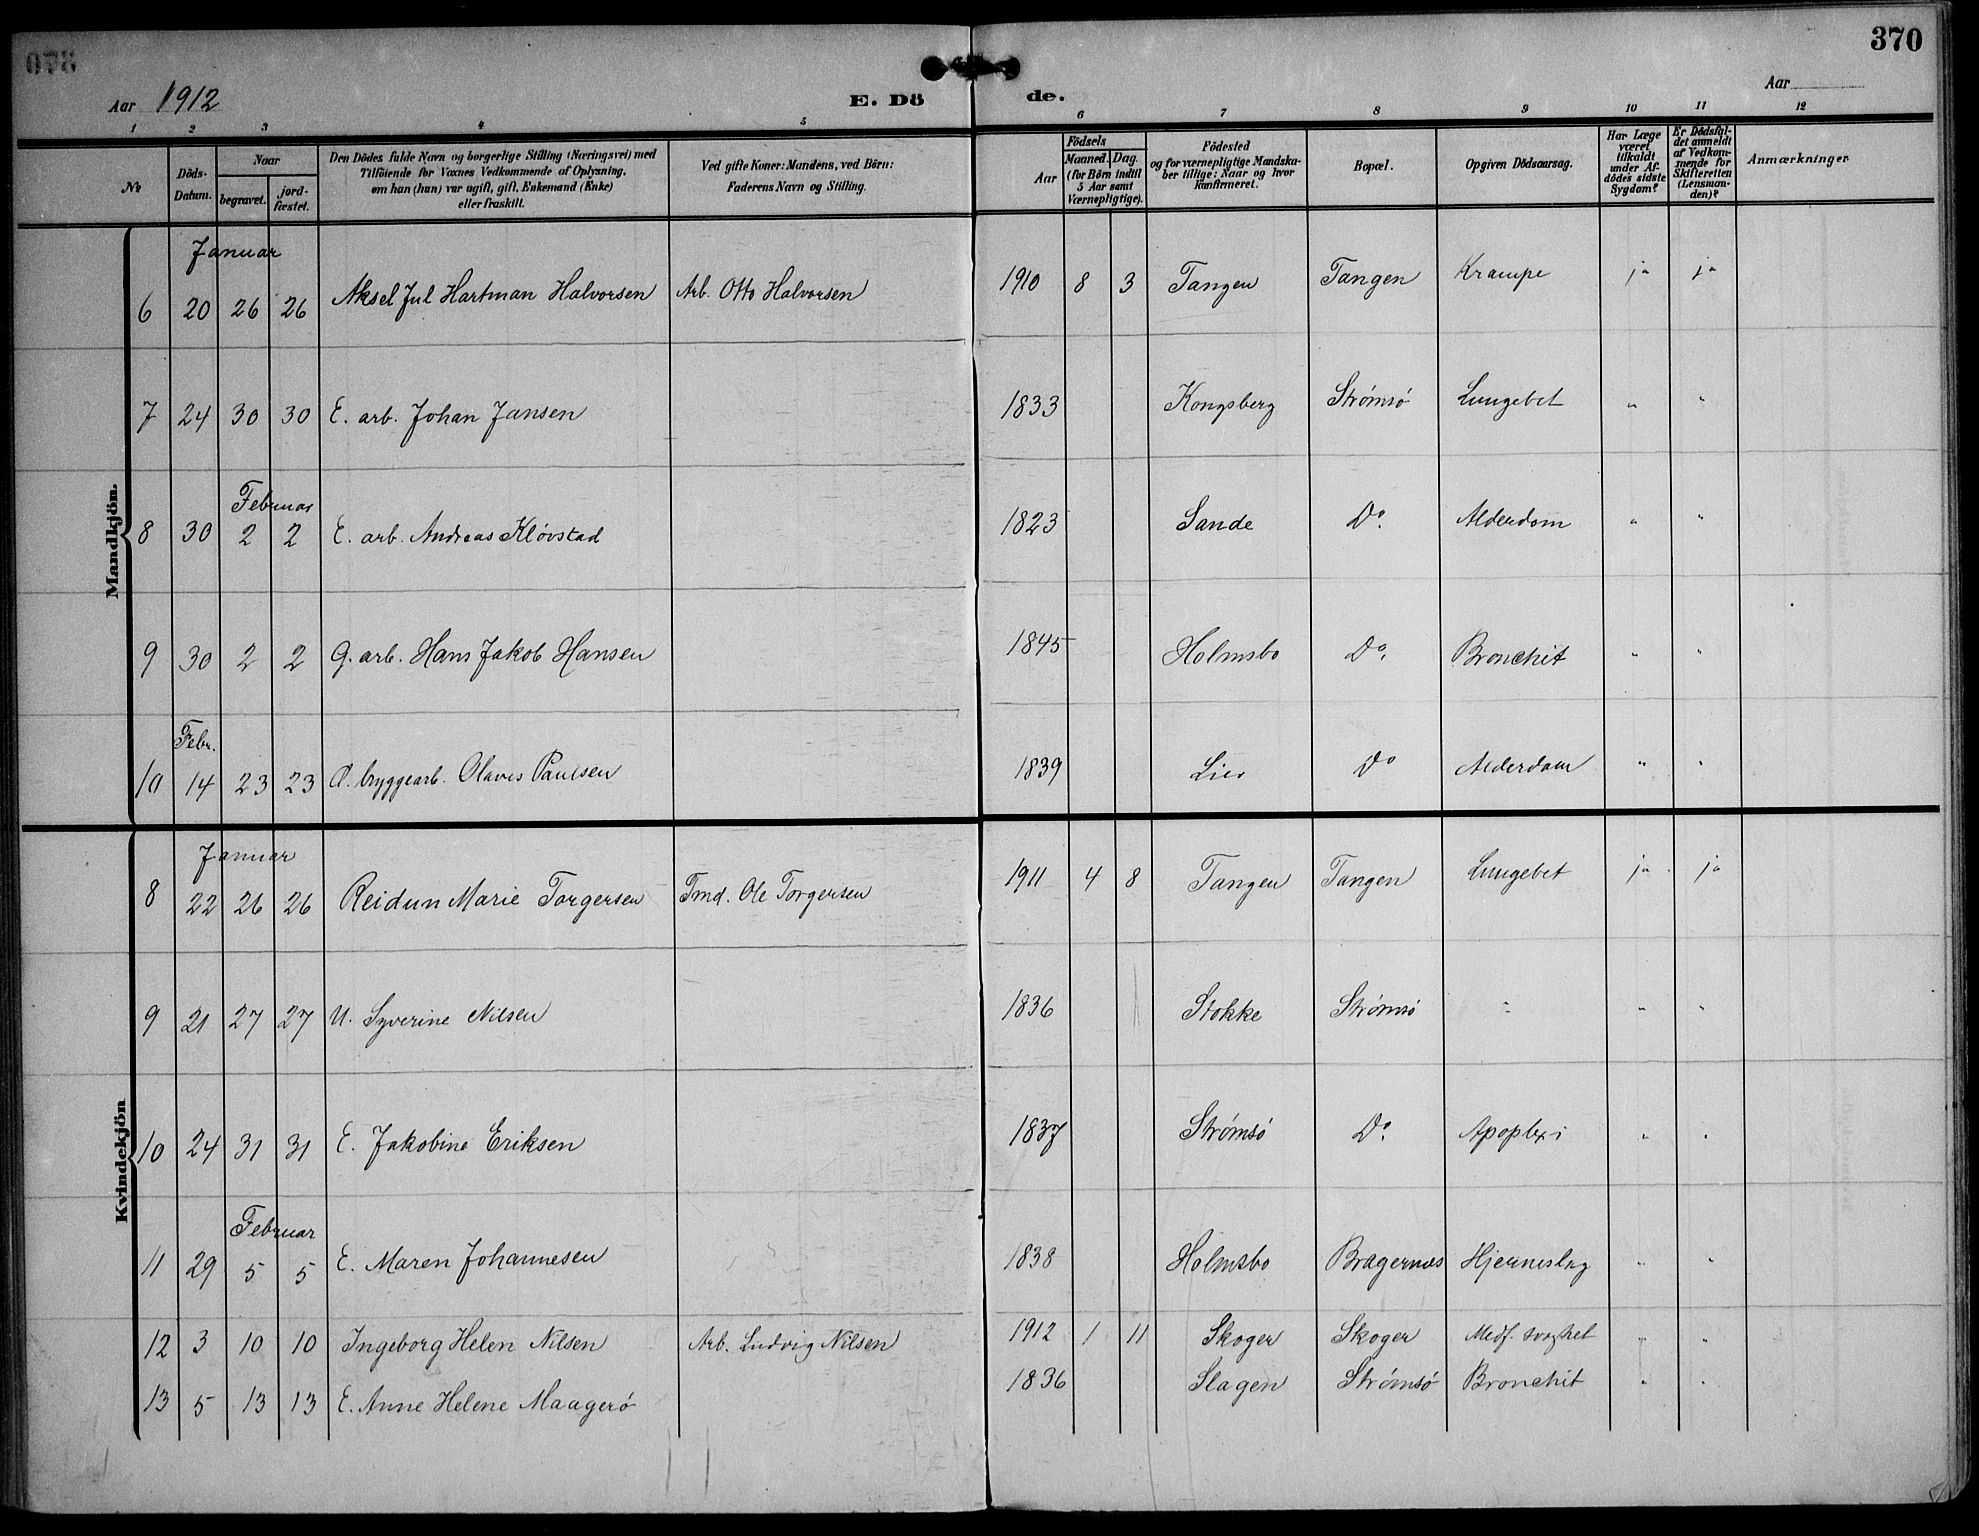 370
Aar 1912 E. Dö de. Aar
1 2 3 4 5 6 7 8 9 10 11 12
No
Döds-Datum.
Naar begravet. jord-fæstet.
Den Dödes fulde Navn og borgerlige Stilling (Næringsvei) med
Tilföiende for Voxnes Vedkommende af Oplysning,
om han (hun) var ugift, gift, Enkemand (Enke)
eller fraskilt.
Ved gifte Koner: Mandens, ved Börn:
Faderens Navn og Stilling.
Födsels
Aar Maaned. Dag.
(for Börn indtil
5 Aar samt
Værnepligtige).
Födested
og for værnepligtige Mandska-
ber tillige: Naar og hvor
konfirmeret.
Bopæl.
Opgiven Dödsaarsag.
Har Læge
været
tilkaldt
under Af-
dödes sidste
Sygdom?
Er Dödsfal-
det anmeldt
af Vedkom-
mende for
Skifteretten
(Lensman-
den)?
Anmærkninger.
Mandkjön.
Januar
6 20 26 26 Aksel Jul Hartman Halvorsen Arb. Otto Halvorsen 1910 8 3 Tangen Tangen Krampe ja ja
7 24 30 30 E. arb. Johan Jansen 1833 Kongsberg Strømsø Lungebet " "
Februar
8 30 2 2 E. arb. Andreas Kløvstad 1823 Sande Do. Alderdom " "
9 30 2 2 G. arb. Hans Jakob Hansen 1845 Holmsbo Do. Bronchit " "
Febr.
10 14 23 23 bryggearb. Olaves Paulsen 1839 Lier Do Alderdom " "
Kvindekjön
Januar
8 22 26 26 Reidun Marie Torgersen Tmd. Ole Torgersen 1911 4 8 Tangen Tangen Lungebet ja ja
9 21 27 27 U. Syverine Nilsen 1836 Stokke Strømsø " " "
10 24 31 31 E. Jakobine Eriksen 1837 Strømsø Do. Apoplexi " "
Februar
11 29 5 5 E. Maren Johannesen 1838 Holmsbo Bragernæs Hjerneslag " "
12 3 10 10 Ingeborg Helen Nilsen Arb. Ludvig Nilsen 1912 1 11 Skoger Skoger Medf. svaghet " "
13 5 13 13 E. Anne Helene Maagerø 1836 Slagen Strømsø Bronchit " "